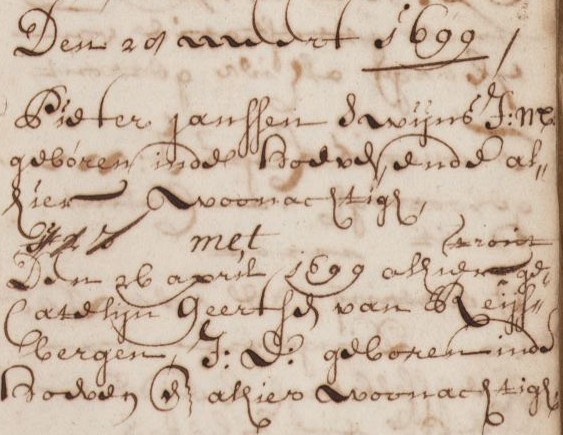 Den 28 meert 1699
Pieter Janssen dwijns J: m
geboren inde hoeven, ende al,,
hier woonachtigh,
met
Den 26 april 1699 alhier ge,, trout
Catelijn Geerts van Reijs,,
bergen, J: D: geboren inde
hoeven & alhier woonachtigh,